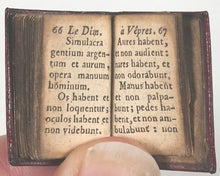 66 Le Dim.
Simulacra
gentium argen-
tum et aurum,
opera manuum
hominum.
Os habent et
non loquentur;
oculos habent et
non videbunt.
à Vêpres. 67
Aures habent,
et non audient;
nares habent, et
non odorabunt.
Manus habent
et non palpa-
bunt; pedes ha-
bent, et non am-
bulabunt; non